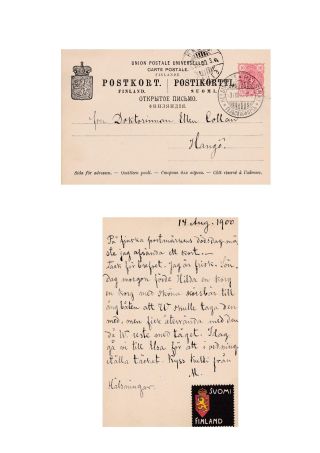 UNION POSTALE UNIVERSELLE
CARTE POSTALE
FINLANDE
POSTKORT. POSTIKORTTI.
FINLAND. SUOMI.
ОТКРЫТОЕ ПИСЬМО.
ФИНЛЯНДІЯ.
Fru Doktorinnan Ellen Collan
Hangö.
Sida för adressen. — Osoitteen puoli. — Côté réservé à l'adresse.
14 Aug. 1900
På finska postmärkens dödsdag må-
ste jag afsända ett kort. —
Tack för brefvet. Jag är frisk. Sön-
dag morgon förde Hilda en korg
en korg med sköna körsbär till
ångbåten att W skulle taga den
med, men fick återvända med den
då W reste med tåget. Idag
gå vi till Elsa för att i ordning
ställa täcket. Kyss Kulti från
M.
Hälsningar.
SUOMI
FINLAND